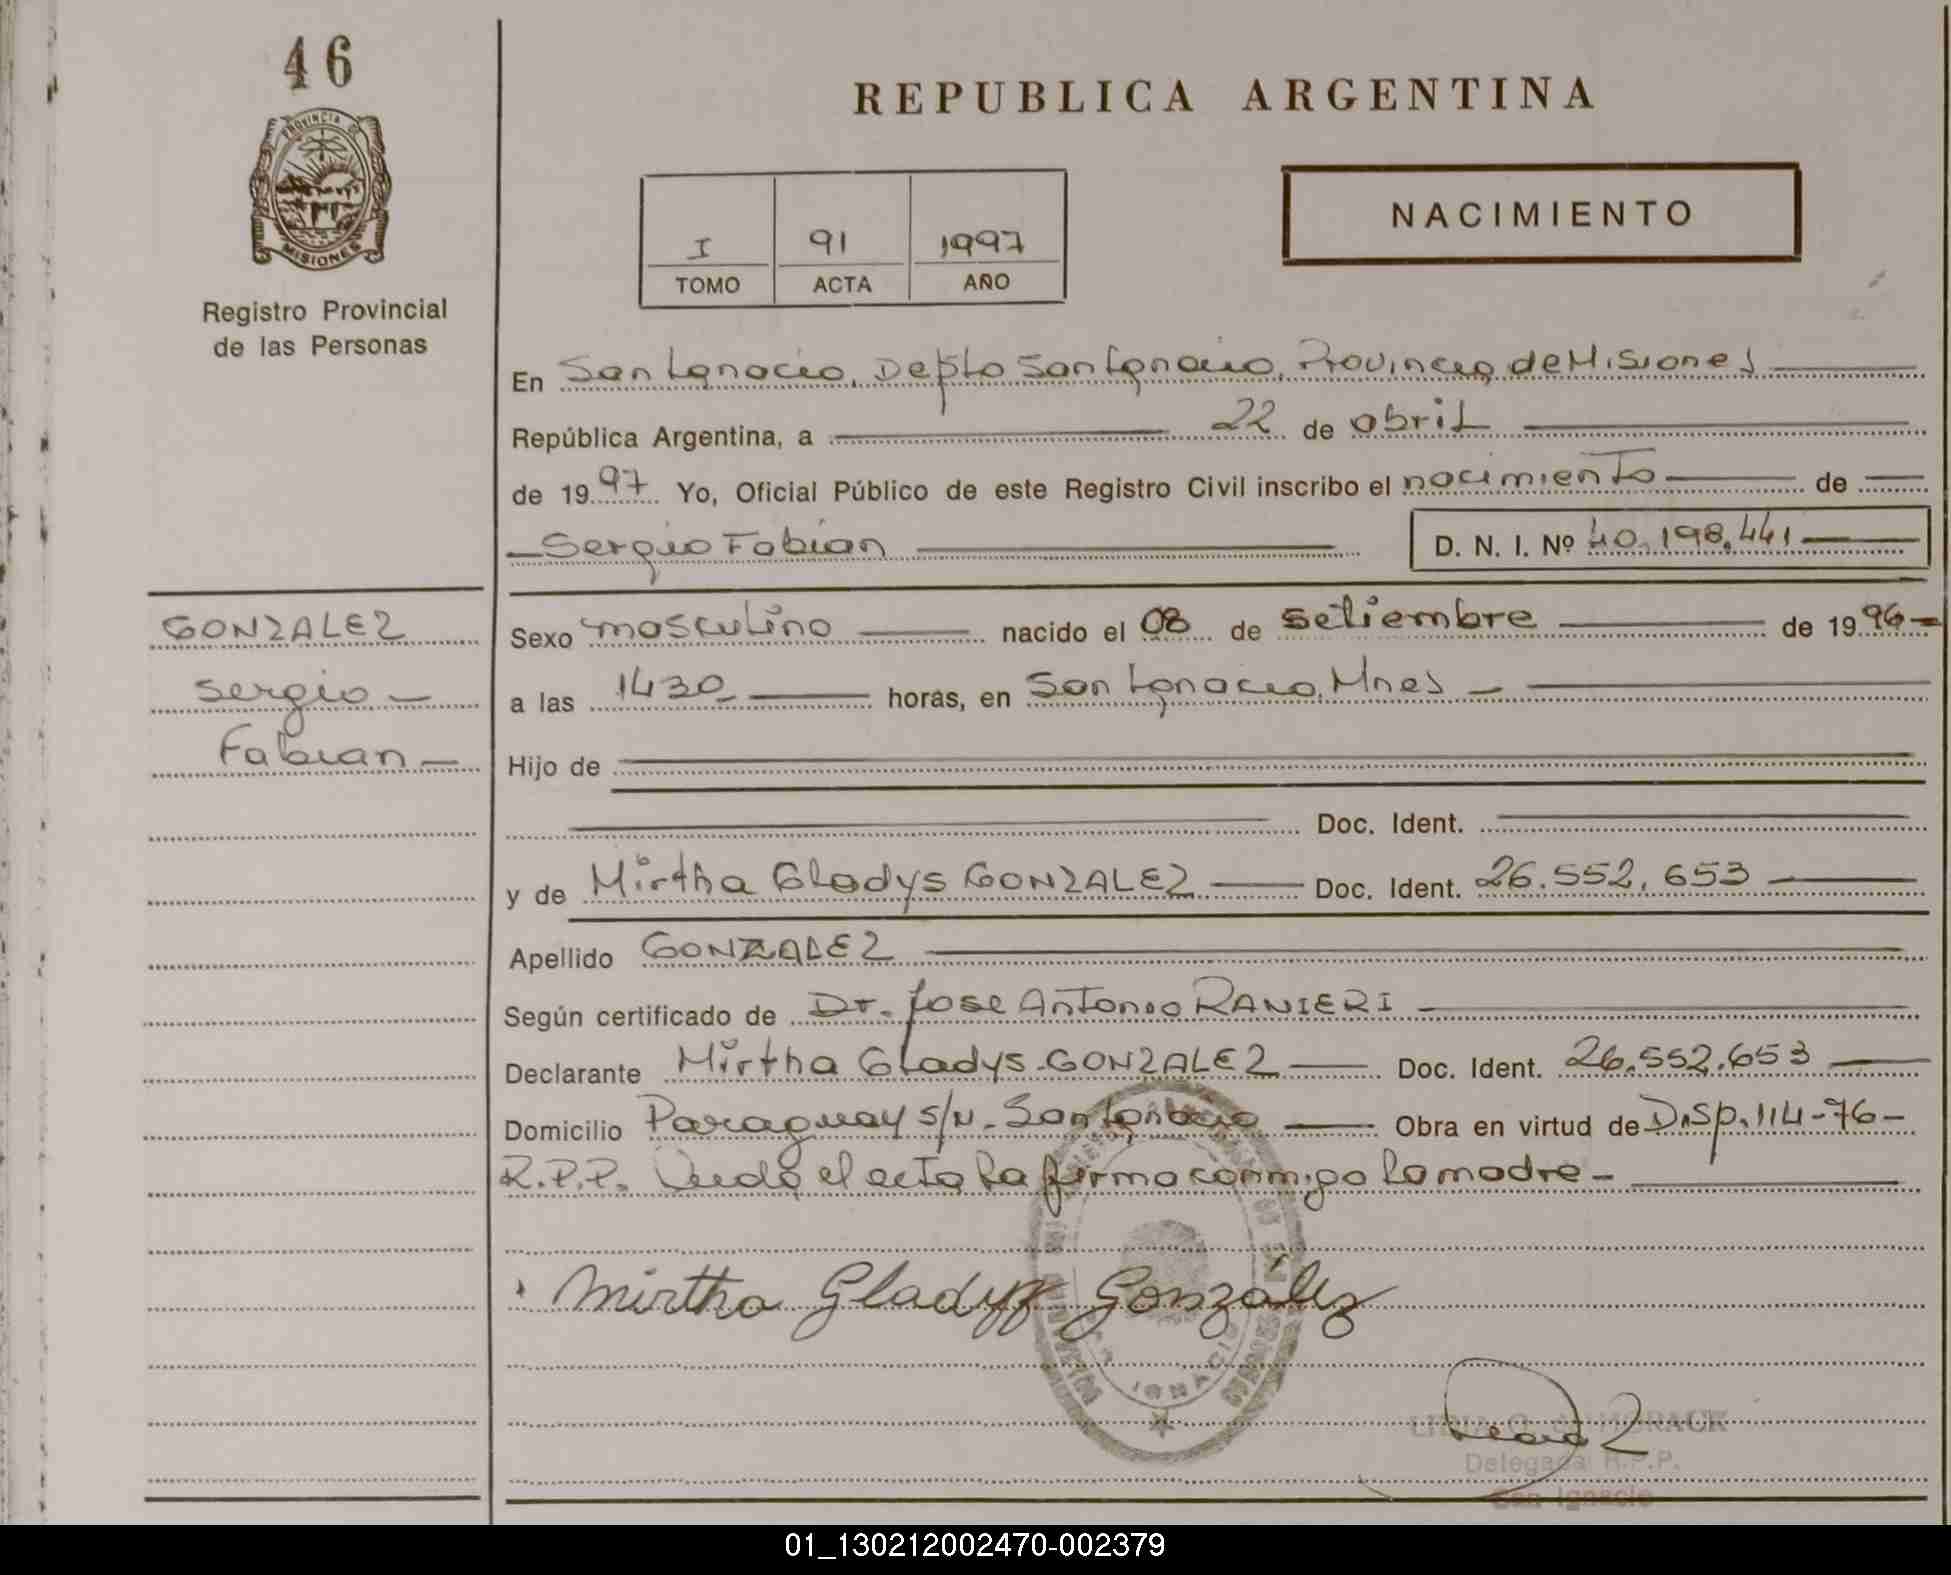 46
REPUBLICA ARGENTINA
PROVINCIA DE
MISIONES
Registro Provincial
de las Personas
NACIMIENTO
I 91 1997
TOMO ACTA AÑO
En San Ignacio, Depto San Ignacio, Provincia de Misiones
República Argentina, a 22 de abril
de 1997 Yo, Oficial Público de este Registro Civil inscribo el nacimiento de
Sergio Fabian D. N. I. Nº 40.198.441
GONZALEZ
Sergio
Fabian
Sexo masculino nacido el 08 de setiembre de 1996
a las 1430 horas, en San Ignacio, Mnes
Hijo de
Doc. Ident.
y de Mirtha Gladys GONZALEZ Doc. Ident. 26.552.653
Apellido GONZALEZ
Según certificado de Dr. Jose Antonio RANIERI
Declarante Mirtha Gladys GONZALEZ Doc. Ident. 26.552.653
Domicilio Paraguay s/n. San Ignacio Obra en virtud de Disp. 114-76-
R.P.P. Leida el acta la firma conmigo la madre
Mirtha Gladys González
IGNACIO
Delegada R.P.P.
San Ignacio
01_130212002470-002379